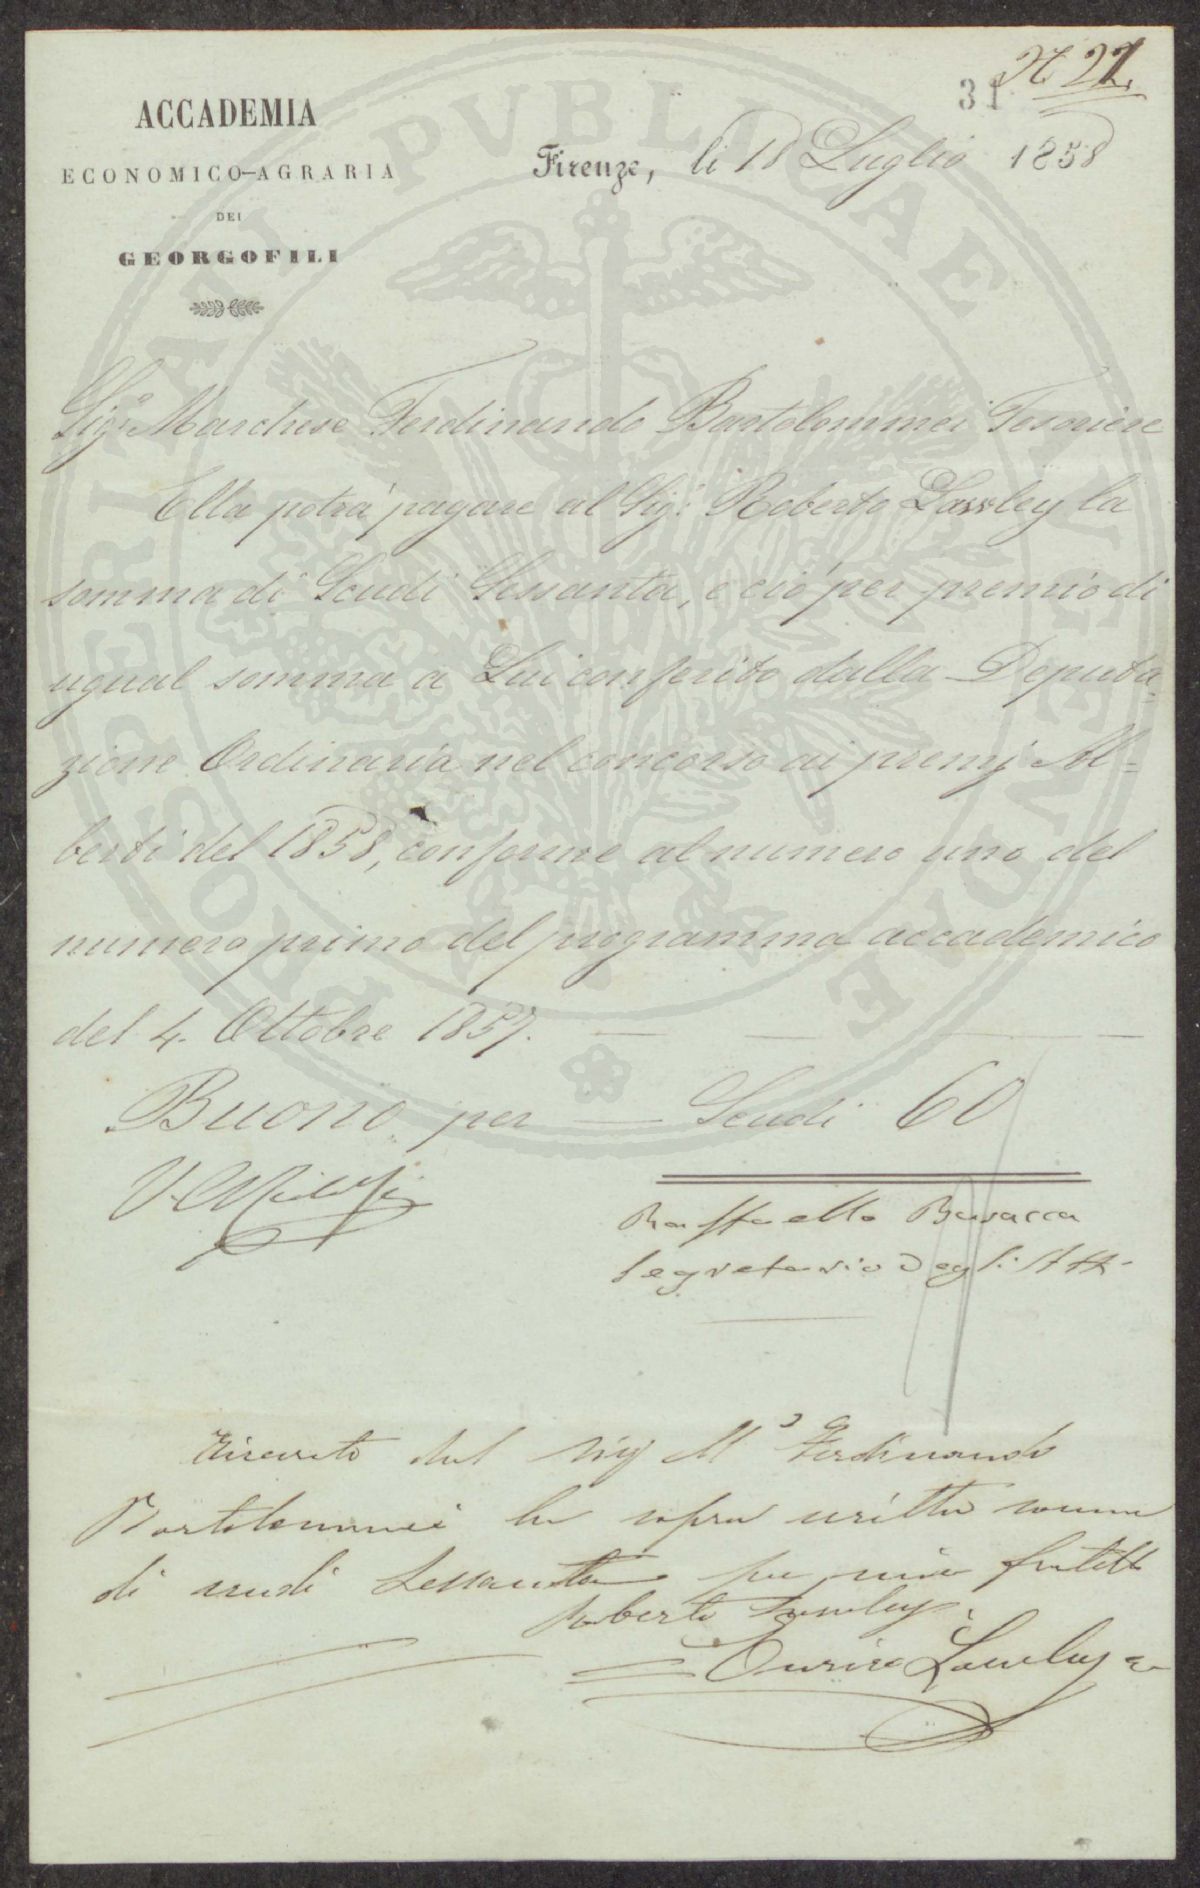 N° 27
31
ACCADEMIA
ECONOMICO-AGRARIA
DEI
GEORGOFILI
Firenze, li 18 Luglio 1858
PROSPERITATI PUBLICAE AUGENDAE
Sigr. Marchese Ferdinando Bartolommei Tesoriere
Ella potrà pagare al Sig. Roberto Lawley la
somma di Scudi Sessanta, e ciò per premio di
ugual somma a Lui conferito dalla Deputa=
zione Ordinaria nel concorso ai premj Al=
berti del 1858, conforme al numero uno del
numero primo del programma accademico
del 4. Ottobre 1857.
Buono per — Scudi 60
Raffaello Busacca
Segretario degli Atti
Ricevuto dal Sig M Ferdinando
Bartolommei la sopra scritta somma
di scudi Sessanta per mio fratello
Roberto Lawley.
Enrico Lawley